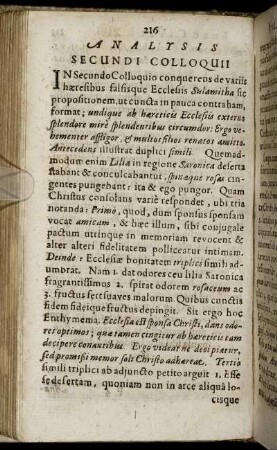 216
ANALYSIS
SECUNDI COLLOQUII
IN Secundo Colloquio conquerens de variis
hæresibus falsisque Ecclesiis Sulamitha sic
propositionem, ut cuncta in pauca contrabam,
format; undique ab hæreticis Ecclesiis externo
splendore mirè splendentibus circumdor: Ergo ve-
hementer affligor, & multos filios renatos amitto.
Antecedens illustrat duplici simili. Quemad-
modum enim Lilia in regione Saronica deserta
stant & conculcabantur, spinæque rosas cin-
gentes pungebant: ita & ego pungor. Quam
Christus consolans variè respondet, ubi tria
notanda: Primò, quod, dum sponsus sponsam
vocat amicam, & hæc illum, sibi conjugale
pactum utrinque in memoriam revocent &
alter alteri fidelitatem polliceatur intimam.
Deinde: Ecclesiæ bonitatem triplici simili ad-
umbrat. Nam 1. dat odores ceu lilia Saronica
fragrantissimos 2. spirat odorem rosaceum ac
3. fructus fert suaves malorum Quibus cunctis
fidem fideique fructus depingit. Sit ergo hoc
Enthymema. Ecclesia est sponsa Christi, dans odo-
res optimos; qua tamen cingitur ab hæreticis eam
decipere conantibus. Ergo videat ne decipiatur,
sed promissi memor soli Christo adhæreat. Tertio
simili triplici ab adjuncto petito arguit 1. Esse
se desertam, quoniam non in arce aliquâ lo-
cisque